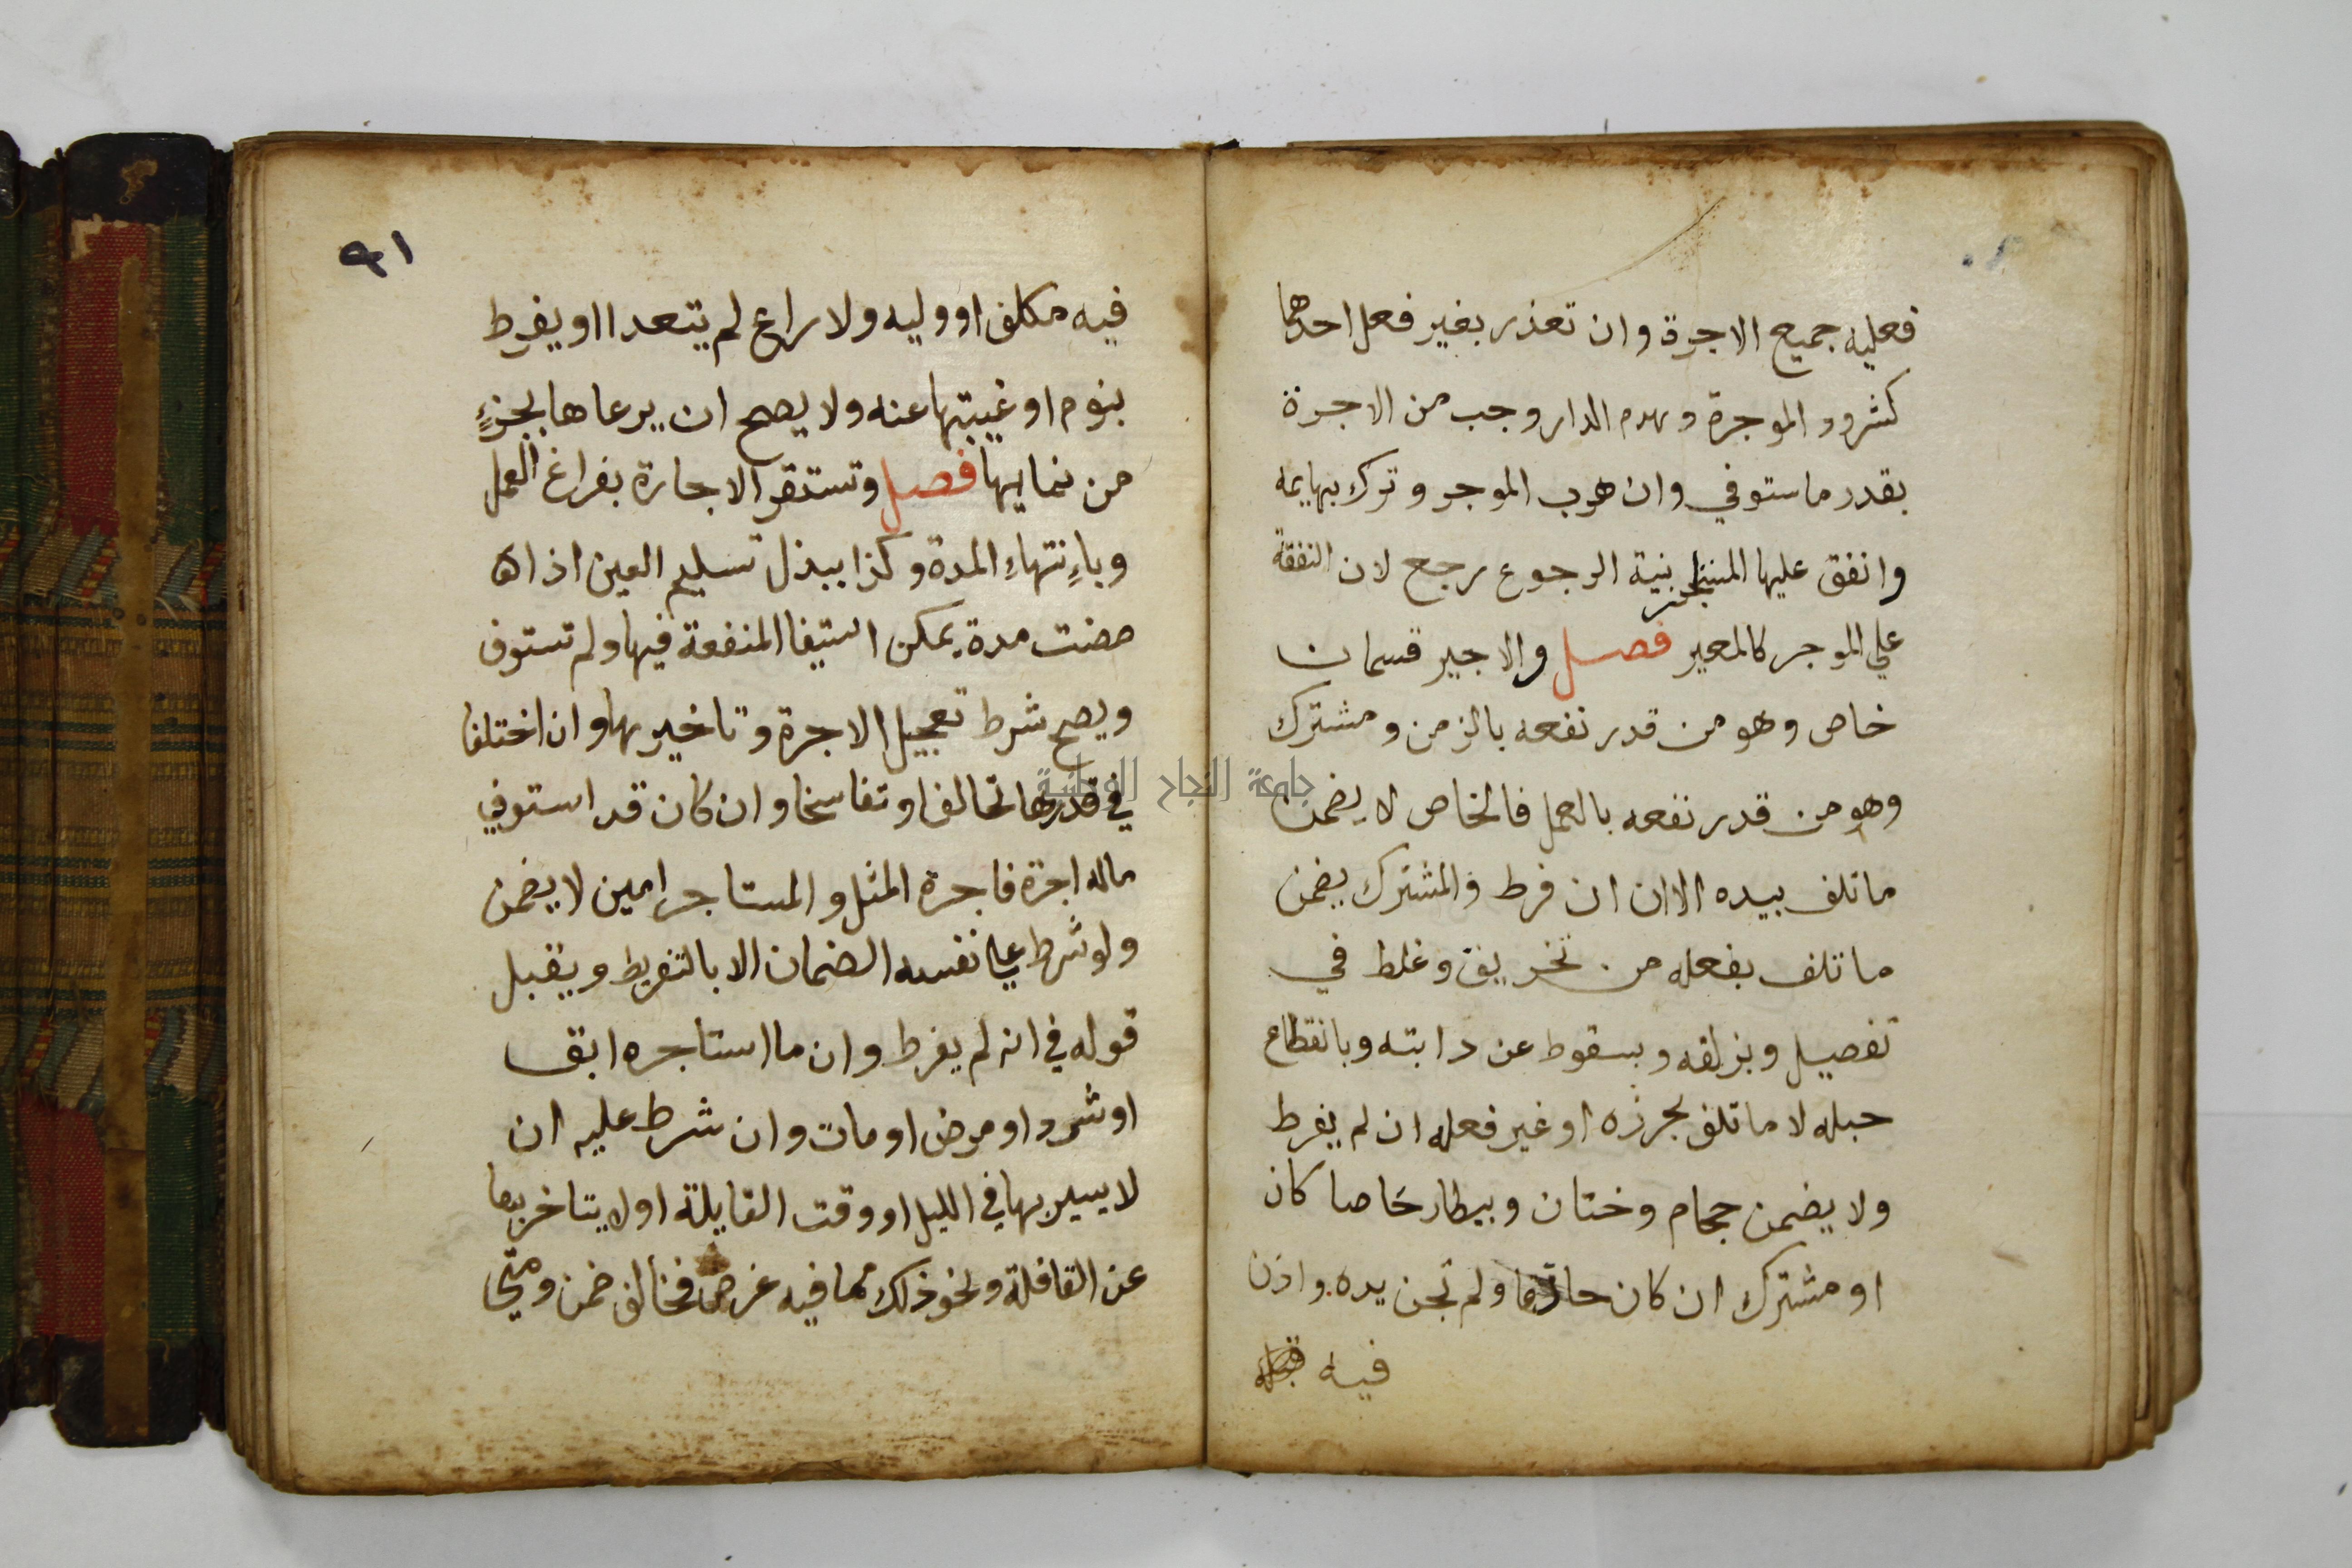 فعليه جميع الاجرة وان تعذر بغير فعل احدهما
كشرود الموجرة وهدم الدار وجب من الاجرة
بقدر ما ستوفي وان هرب الموجر وترك بهايمه
وانفق عليها بنية الرجوع رجع لان النفقة
علي الموجر كالمعير فصل والاجير قسمان
خاص وهو من قدر نفعه بالزمن ومشترك
وهو من قدر نفعه بالعمل فالخاص لا يضمن
ما تلف بيده الا ان ان فرط والمشترك يضمن
ما تلف بفعله من تخريق وغلط في
تفصيل وبزلقه وبسقوط عن دابته وبانقطاع
حبله لا ما تلف بحرزه او غير فعله ان لم يفرط
ولا يضمن حجام وختان وبيطار خاصا كان
او مشترك ان كان حاذقا ولم تجن يده واذن
فيه
٩١
فيه مكلف او وليه ولا راع لم يتعدا او يفرط
بنوم او غيبتها عنه ولا يصح ان يرعاها بجزءٍ
من نمايها فصل وتستقر الاجارة بفراغ العمل
وباءِنتهاءِ المدة وكذا ببذل تسليم العين اذا
مضت مدة يمكن استيفا المنفعة فيها ولم تستوف
ويصح شرط تعجيل الاجرة وتاخيرها وان اختلفا
في قدرها تحالفا وتفاسخا وان كان قد استوفي
ماله اجرة فاجرة المثل والمستاجر امين لا يضمن
ولو شرط علي نفسه الضمان الا بالتفريط ويقبل
قوله في انه لم يفرط وان ما استأجره ابق
او شرد او مرض او مات وان شرط عليه ان
لا يسير بها في الليل او وقت القايلة او لا يتاخر بها
عن القافلة ونحو ذلك مما فيه غرض فخالف ضمن ومتي
جامعة النجاح الوطنية